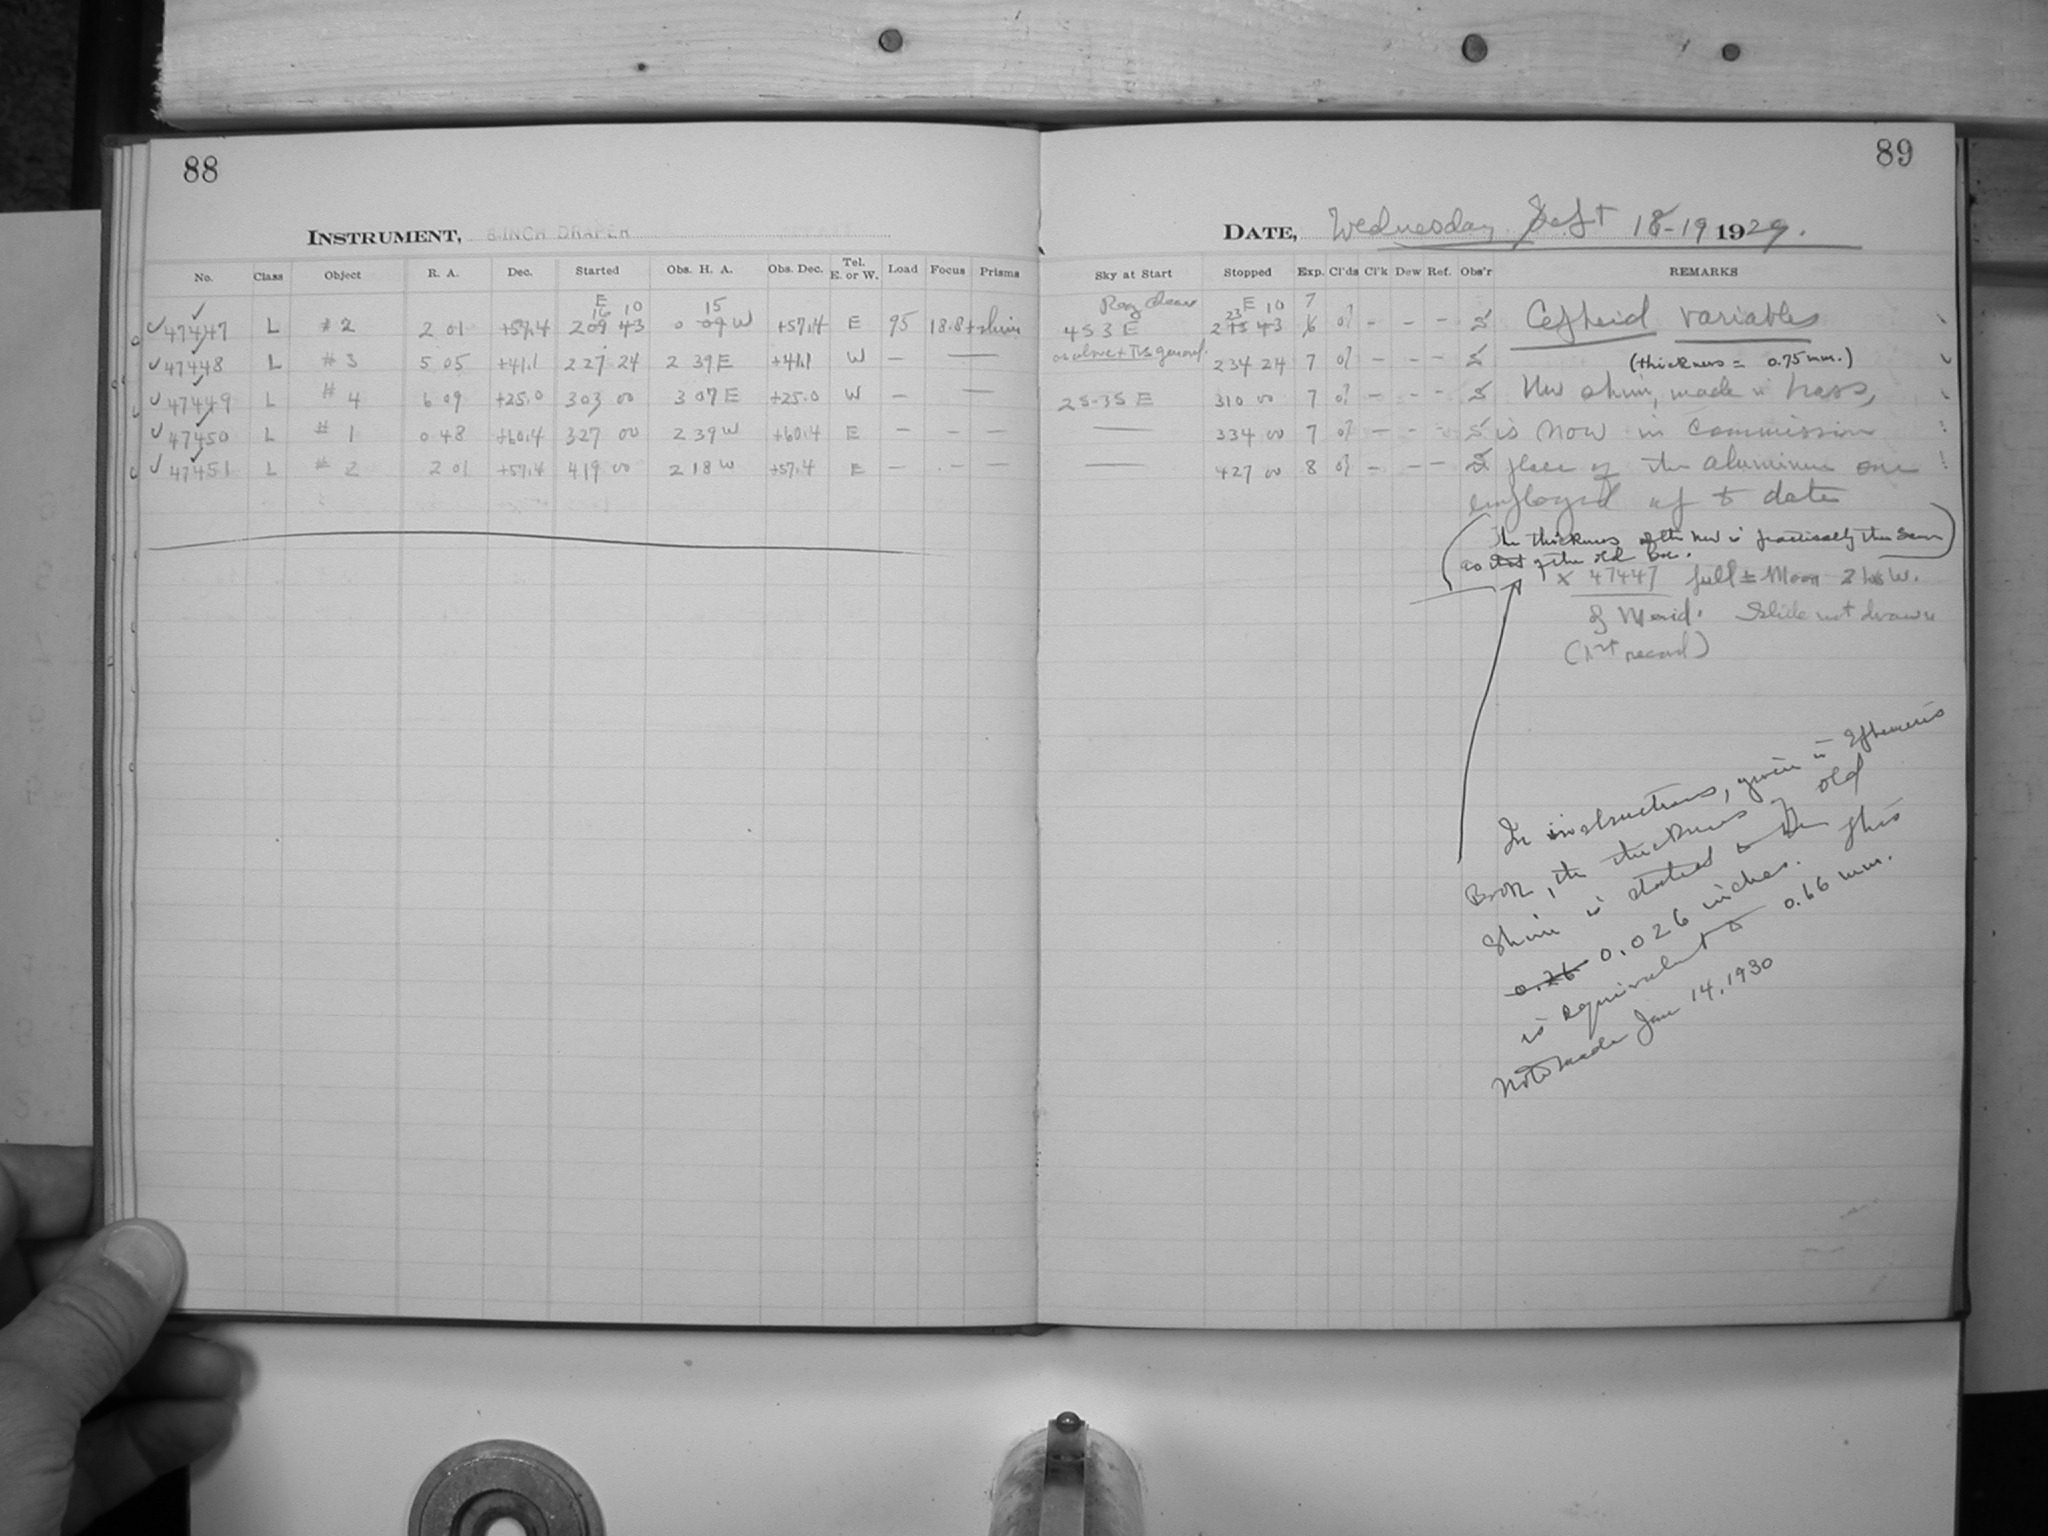 88
INSTRUMENT, 8 INCH DRAPER
No. Class Object R. A. Dec. Started Obs. H. A. Obs. Dec. Tel. E. or W. Load Focus Prisms
E 16 10 15
47447 L #2 2 01 +57.4 2 09 43 0 09 W +57.4 E 95 18.8 + shim
47448 L #3 5 05 +41.1 2 27 24 2 39 E +41.1 W — —
47449 L #4 6 09 +25.0 3 03 00 3 07 E +25.0 W — —
47450 L #1 0 48 +60.4 3 27 00 2 39 W +60.4 E — — —
47451 L #2 2 01 +57.4 4 19 00 2 18 W +57.4 E — — —
89
DATE, Wednesday Sept 18-19 1929.
Sky at Start Stopped Exp. Cl'ds Cl'k Dew Ref. Obs'r REMARKS
clear 23 E 10 7
4 S 3 E 2 15 43 6 0/ – – – S Cepheid variables
as above + 2 34 24 7 0/ – – – S (thickness = 0.75 mm.)
2S-3S E 3 10 00 7 0/ – – – S New shim, made of brass,
— 3 34 00 7 0/ – – – S is now in commission
— 4 27 00 8 0/ – – – S place of the aluminum one
employed up to date
(The thickness of the new is practically the same
as that of the old one.)
x 47447 full ± Moon 2 hrs W.
of Merid. Slide not drawn
(1st record)
In instructions, given in Ephemeris
Book, the thickness of old
shim is stated to be
0.26 0.026 inches. This
is equivalent to 0.66 mm.
Note made Jan 14, 1930